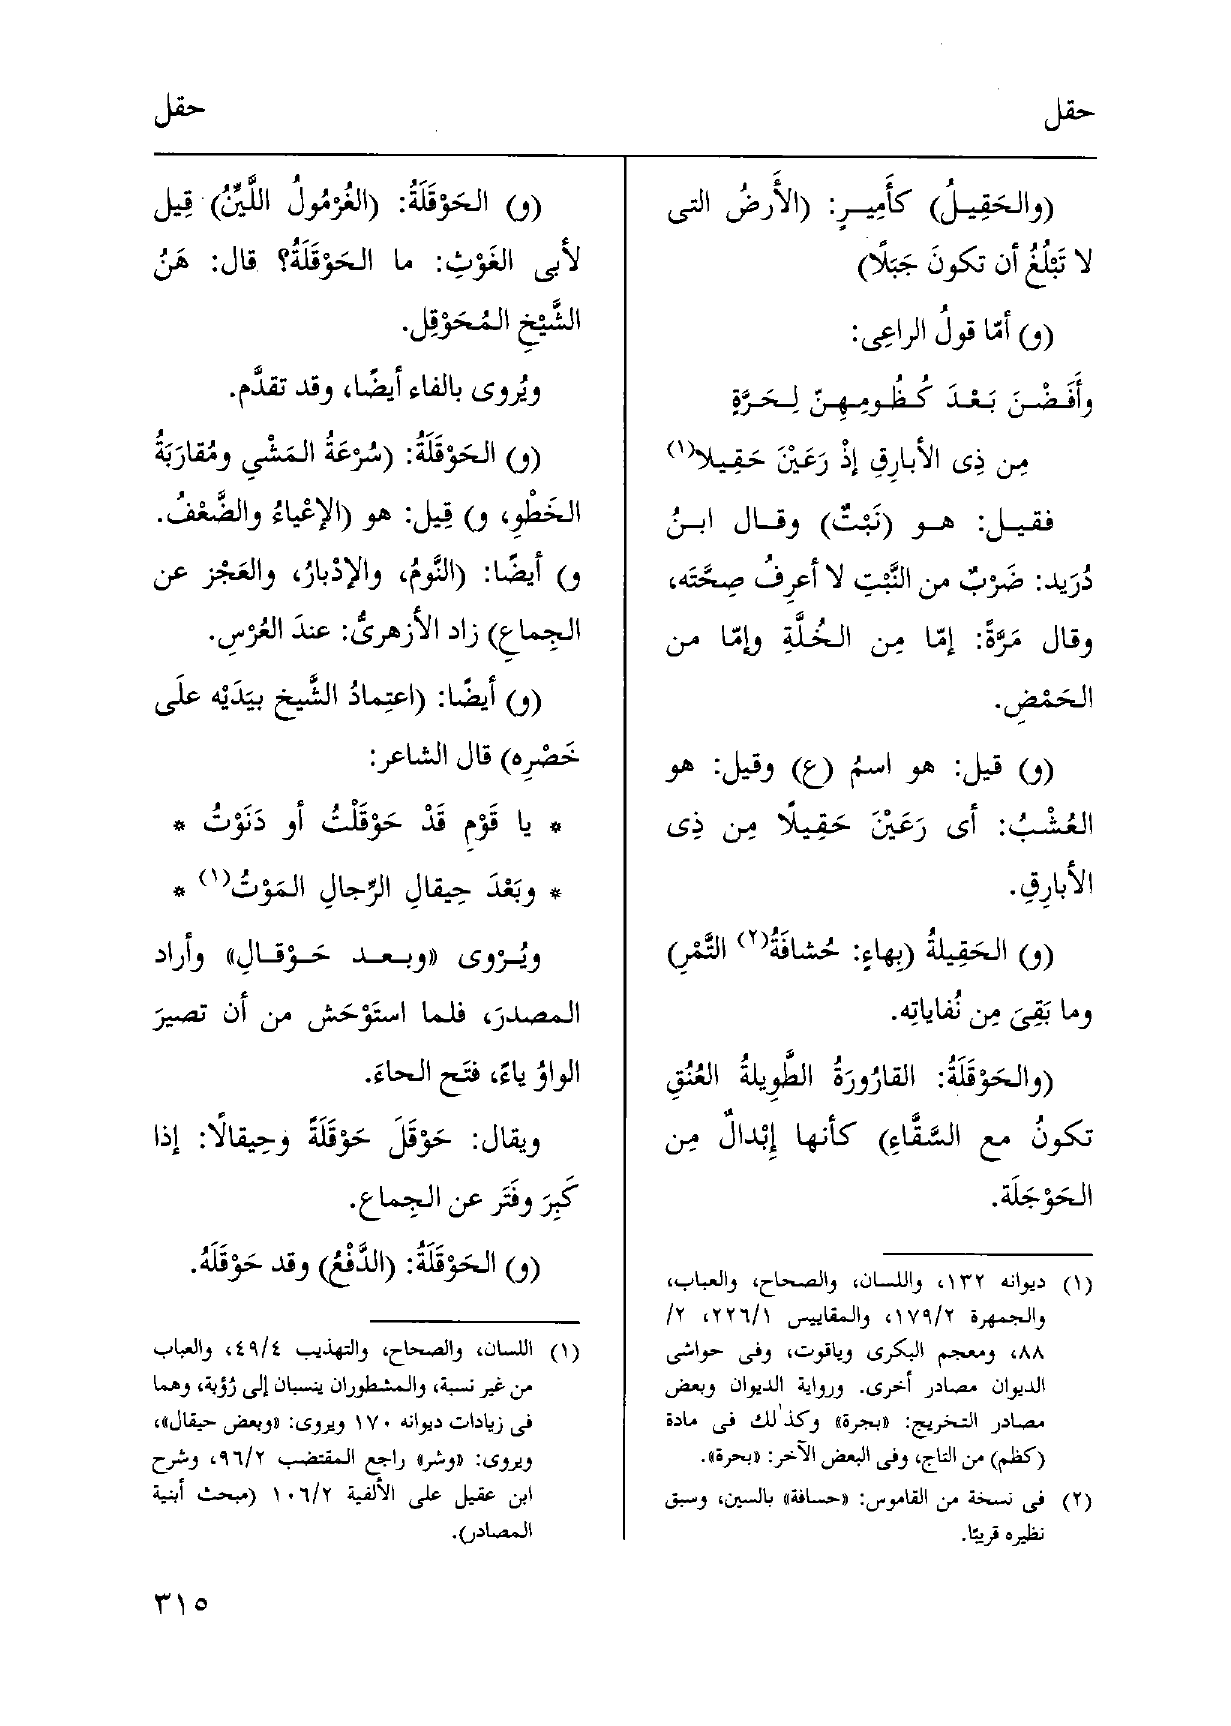 حقل
حقل
(والحَقِيلُ) كأَمِيرٍ: (الأَرضُ التى
لا تَبْلُغُ أن تكونَ جَبَلًا)
(و) أمّا قولُ الراعِى:
وأَفَضْنَ بَعْدَ كُظُومِهِنّ لِحَرَّةٍ
مِن ذِى الأبارِقِ إذْ رَعَيْنَ حَقِيلا(١)
فقيل: هو (نَبْتٌ) وقال ابنُ
دُرَيد: ضَرْبٌ من النَّبْتِ لا أعرِفُ صِحَّتَه،
وقال مَرَّةً: إمّا مِن الخُلَّةِ وإمّا من
الحَمْضِ.
(و) قيل: هو اسمُ (ع) وقيل: هو
العُشْبُ: أى رَعَيْنَ حَقِيلًا مِن ذِى
الأبارِقِ.
(و) الحَقِيلةُ (بِهاءٍ: حُشافَةُ(٢) التَّمْرِ)
وما بَقِىَ مِن نُفاياتِه.
(والحَوْقَلَةُ: القارُورَةُ الطَّوِيلةُ العُنُقِ
تكونُ مع السَّقَّاءِ) كأنها إبْدالٌ مِن
الحَوْجَلَة.
(١) ديوانه ١٣٢، واللسان، والصحاح، والعباب،
والجمهرة ١٧٩/٢، والمقاييس ٢٢٦/١، ٢/
٨٨، ومعجم البكرى وياقوت، وفى حواشى
الديوان مصادر أخرى. ورواية الديوان وبعض
مصادر التخريج: «بجرة» وكذلك فى مادة
(كظم) من التاج، وفى البعض الآخر: «بحرة».
(٢) فى نسخة من القاموس: «حسافة» بالسين، وسبق
نظيره قريبًا.
(و) الحَوْقَلَةُ: (الغُرْمُولُ اللَّيِّنُ) قِيل
لأبى الغَوْثِ: ما الحَوْقَلَةُ؟ قال: هَنُ
الشَّيْخِ المُحَوْقِل.
ويُروى بالفاء أيضًا، وقد تقدَّم.
(و) الحَوْقَلَةُ: (سُرْعَةُ المَشْيِ ومُقارَبَةُ
الخَطْوِ، و) قِيل: هو (الإعْياءُ والضَّعْفُ.
و) أيضًا: (النَّومُ، والإدْبارُ، والعَجْز عن
الجِماعِ) زاد الأزهرىُّ: عندَ العُرْسِ.
(و) أيضًا: (اعتِمادُ الشَّيخِ بيَدَيْه علَى
خَصْرِه) قال الشاعر:
* يا قَوْمِ قَدْ حَوْقَلْتُ أو دَنَوْتُ *
* وبَعْدَ حِيقالِ الرِّجالِ المَوْتُ(١) *
ويُروى «وبعد حَوْقال» وأراد
المصدرَ، فلما استَوْحَش من أن تصيرَ
الواوُ ياءً، فتَح الحاءَ.
ويقال: حَوْقَلَ حَوْقَلَةً وحِيقالًا: إذا
كَبِرَ وفَتَر عن الجِماع.
(و) الحَوْقَلَةُ: (الدَّفْعُ) وقد حَوْقَلَهُ.
(١) اللسان، والصحاح، والتهذيب ٤٩/٤، والعباب
من غير نسبة، والمشطوران ينسبان إلى رُؤبة، وهما
فى زيادات ديوانه ١٧٠ ويروى: «وبعض حيقال»،
ويروى: «وشر» راجع المقتضب ٩٦/٢، وشرح
ابن عقيل على الألفية ١٠٦/٢ (مبحث أبنية
المصادر).
٣١٥